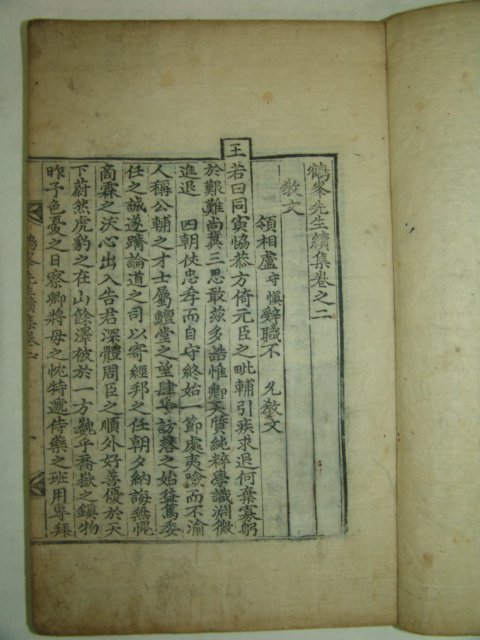 鶴峯先生續集卷之二
敎文
領相盧守愼辭職不 允敎文
王若曰同寅協恭方倚元臣之毗輔引疾求退何棄寡躬
於艱難尚冀三思敢玆多誥惟卿天質純粹學識淵微
進退 四朝侠忠孝而自守終始一節處夷險而不渝
人稱公輔之才士屬鱣堂之望肆予訪落之始益篤委
任之誠遂躋論道之司以寄經邦之任朝夕納誨無愧
商霖之沃心出入告君深體周臣之順外好善優於天
下蔚然虎豹之在山餘澤被於一方巍乎喬嶽之鎭物
昨予色憂之日察卿將母之忱特遞侍藥之班用專拜
鶴峯先生續集卷二